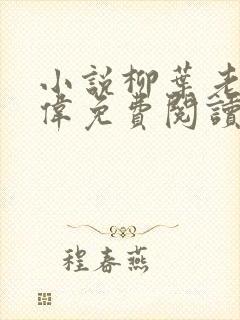 小說柳葉老
偉免費閱讀
程春燕